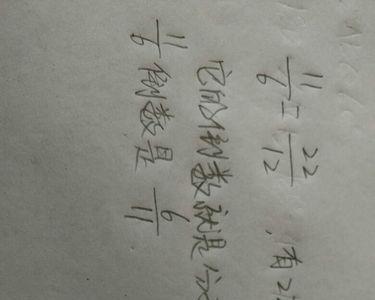 11/6 = 22/12 ,有2
它的倒数就是分
11/6 倒数是 6/11